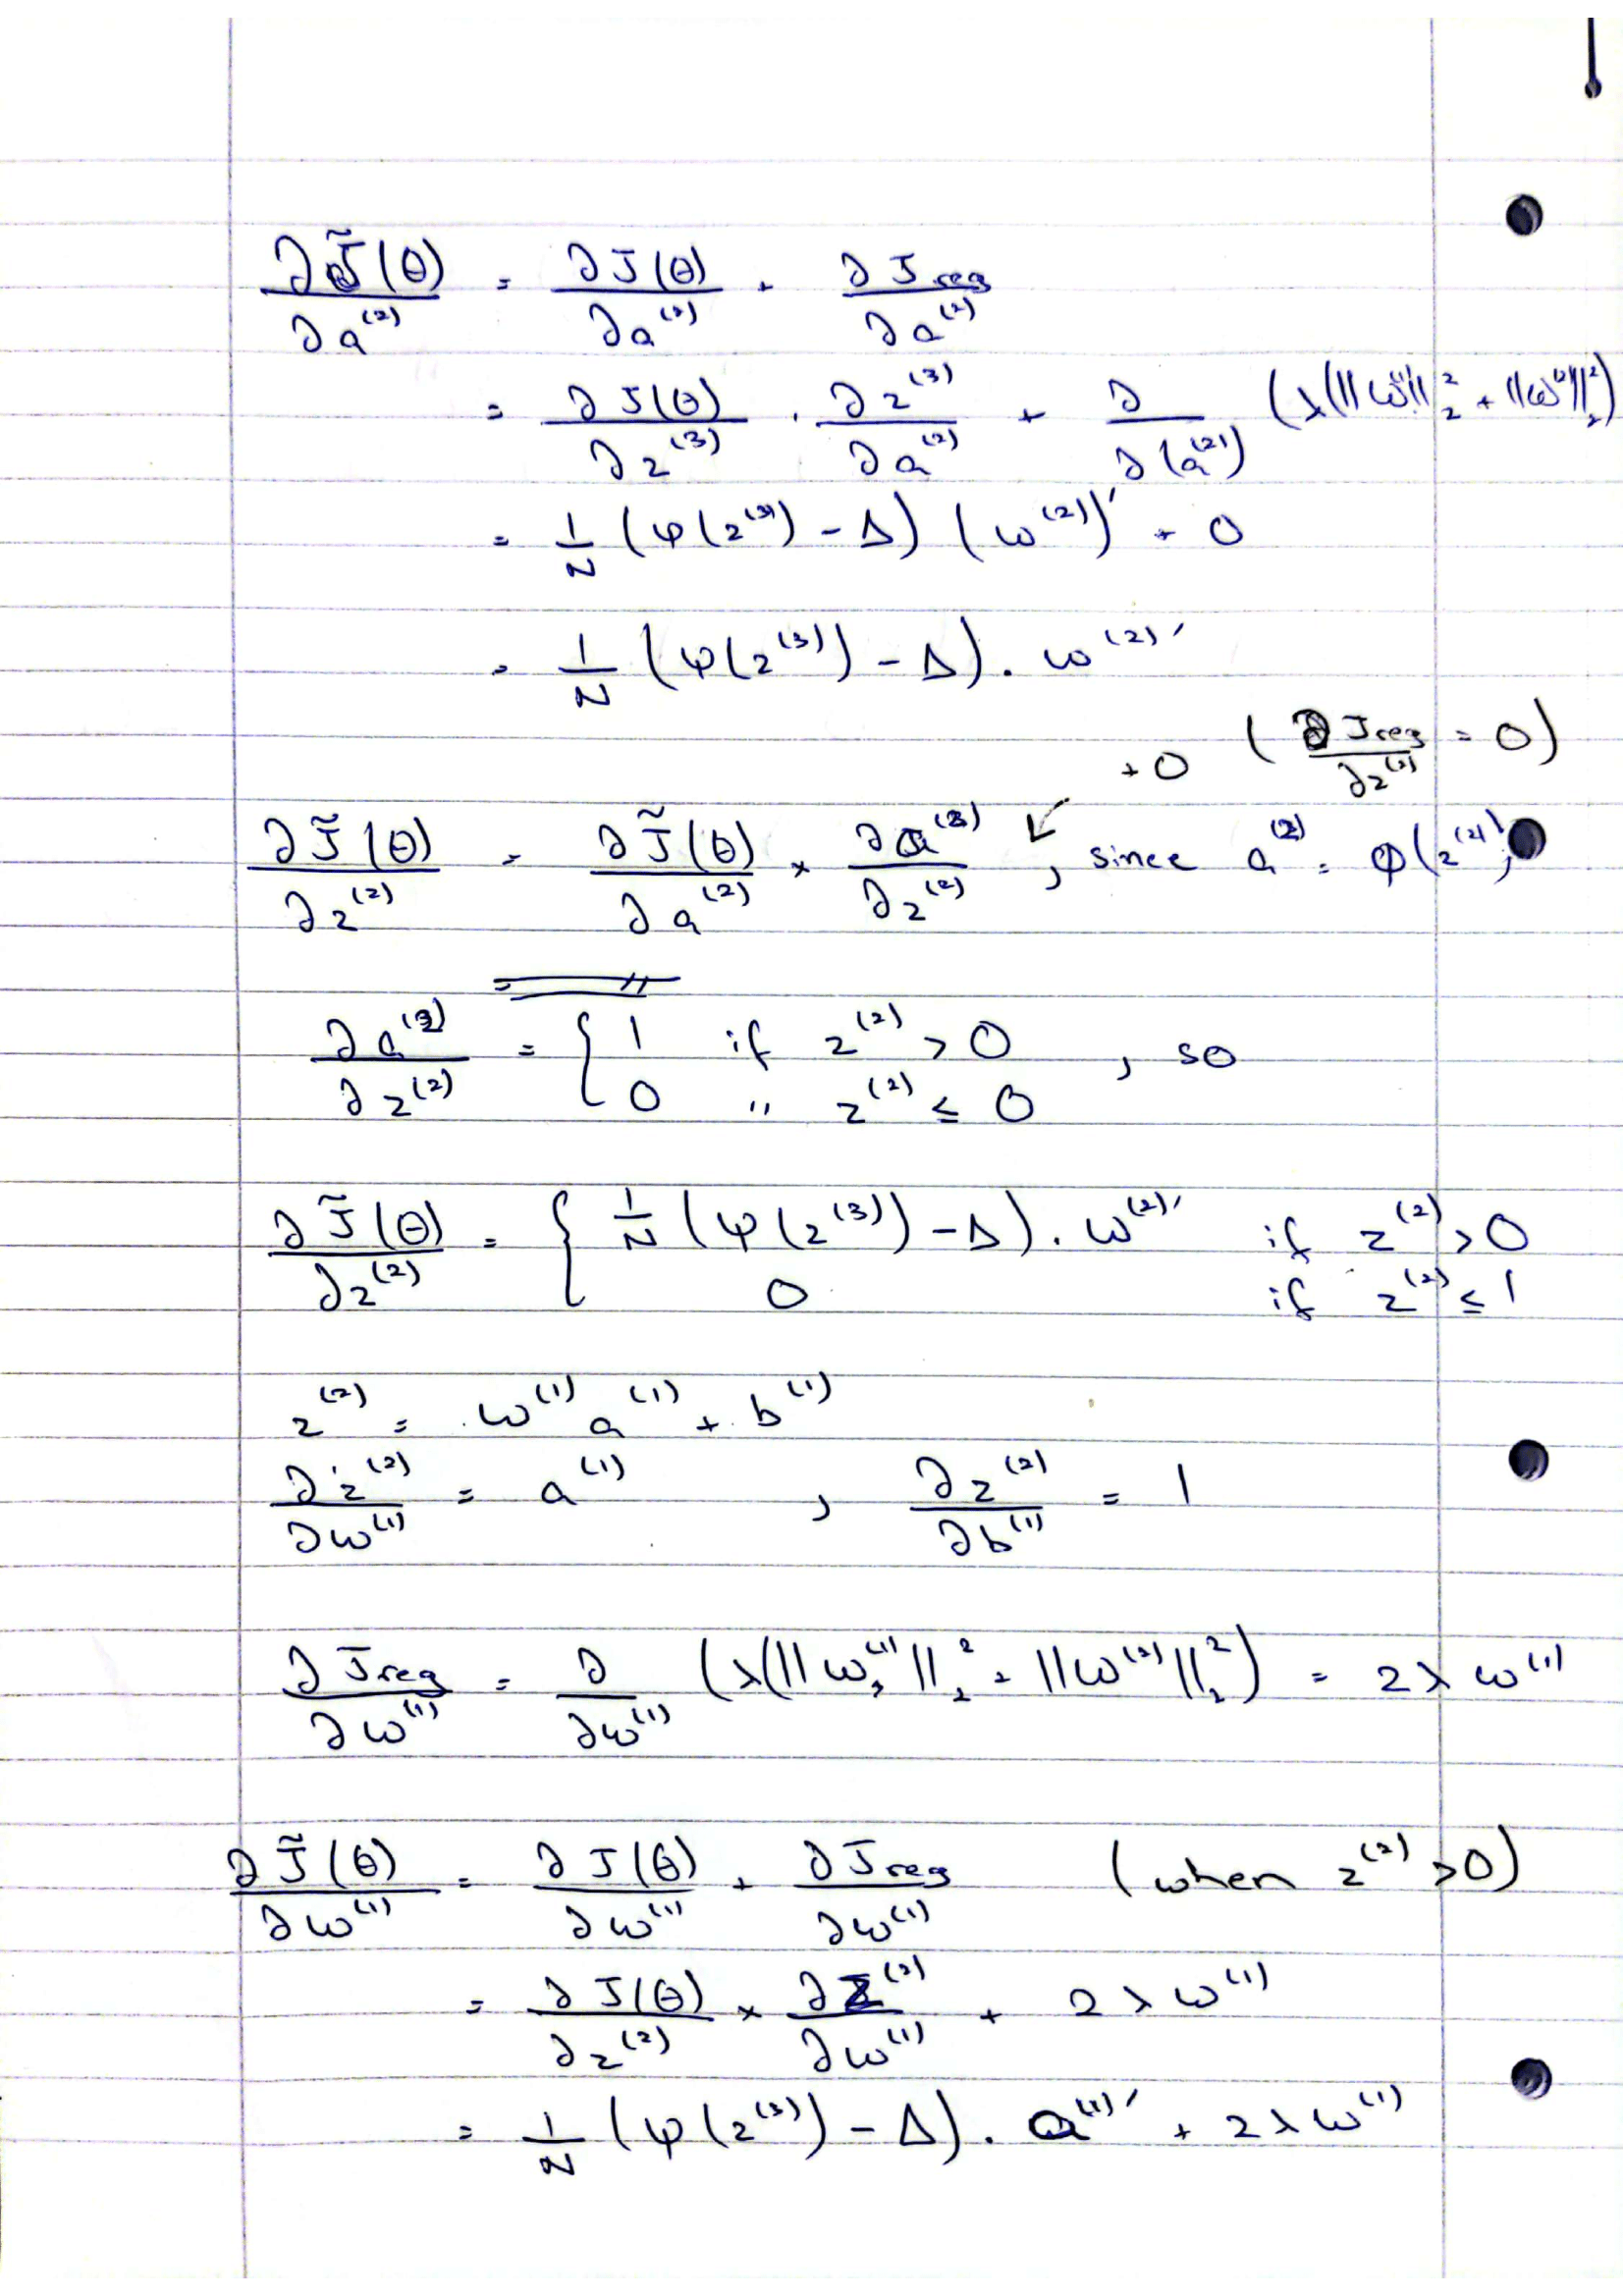 ∂J̃(θ)/∂a^(2) = ∂J(θ)/∂a^(2) + ∂Jreg/∂a^(2)
= ∂J(θ)/∂z^(3) . ∂z^(3)/∂a^(2) + ∂/∂(a^(2)) (λ(||ω^(1)||₂² + ||ω^(2)||₂²)
= 1/N (ψ(z^(3)) - Δ) (ω^(2))' + 0
= 1/N (ψ(z^(3)) - Δ) . ω^(2)'
+ 0 (∂Jreg/∂z^(2) = 0)
∂J̃(θ)/∂z^(2) = ∂J̃(θ)/∂a^(2) × ∂a^(2)/∂z^(2) , since a^(2) = φ(z^(2))
=
∂a^(2)/∂z^(2) = { 1 if z^(2) > 0 , so
0 " z^(2) ≤ 0
∂J̃(θ)/∂z^(2) = { 1/N (ψ(z^(3)) - Δ) . ω^(2)' if z^(2) > 0
0 if z^(2) ≤ 1
z^(2) = ω^(1) a^(1) + b^(1)
∂z^(2)/∂ω^(1) = a^(1) , ∂z^(2)/∂b^(1) = 1
∂Jreg/∂ω^(1) = ∂/∂ω^(1) (λ(||ω^(1)||₂² + ||ω^(2)||₂²) = 2λω^(1)
∂J̃(θ)/∂ω^(1) = ∂J(θ)/∂ω^(1) + ∂Jreg/∂ω^(1) (when z^(2) > 0)
= ∂J(θ)/∂z^(2) × ∂z^(2)/∂ω^(1) + 2λω^(1)
= 1/N (ψ(z^(3)) - Δ) . a^(1)' + 2λω^(1)